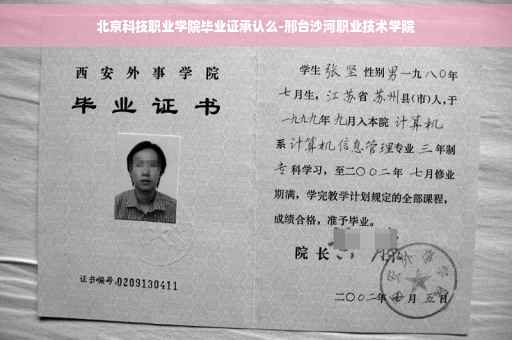 北京科技职业学院毕业证承认么-邢台沙河职业技术学院
西安外事学院
毕业证书
证书编号:0209130411
学生 张坚 性别 男 一九八〇年
七月生, 江苏省 苏州县(市)人, 于
一九九九年 九月入本院 计算机
系 计算机信息管理专业 三 年制
专 科学习, 至二〇〇二年 七月修业
期满, 学完教学计划规定的全部课程,
成绩合格, 准予毕业。
院长
二〇〇二年 月 五日